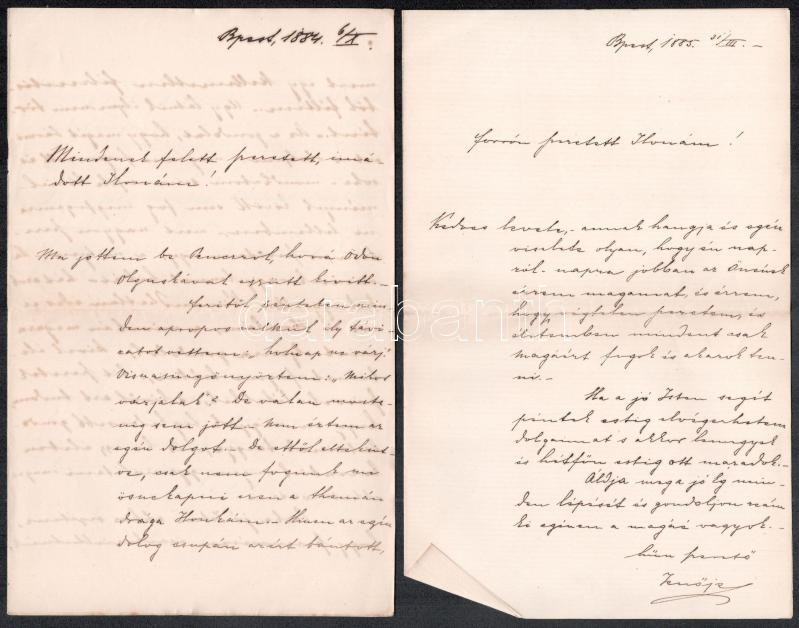 Bpest, 1884. 6/X.
Mindenek felett szeretett, imá
dott Ilonám!
Ma jöttem be hová Ödön
együtt kivitt.-
minden
apropos nélkül ily távi
ratot vettem: „holnap ne várj."
Visszasürgönyöztem: „Mikor
várjalak"? De válasz mosta-
nig sem jött. Nem értem az
egész dolgot. De ettől eltekint-
ve, csak nem fogunk mi
össze ezen a themán
drága Ilonkám. Hiszen az egész
dolog csupán azért bántott,
Bpest, 1885. 31/III. -
Forrón szeretett Ilonám!
Kedves levele, - annak hangja és egész
viselete olyan, hogy én nap-
ról-napra jobban az Önének
érzem magamat, és érzem,
hogy végtelen szeretem, és
életemben mindent csak
magáért fogok és akarok ten-
ni. -
Ha a jó Isten segít
péntek estig elvégezhetem
dolgaimat s akkor lemegyek
és hétfőn estig ott maradok. -
Áldja meg a jó Ég min-
den lépését és gondoljon reám
ki egészen a magáé vagyok. -
hűn szerető
Jenője
darabanth